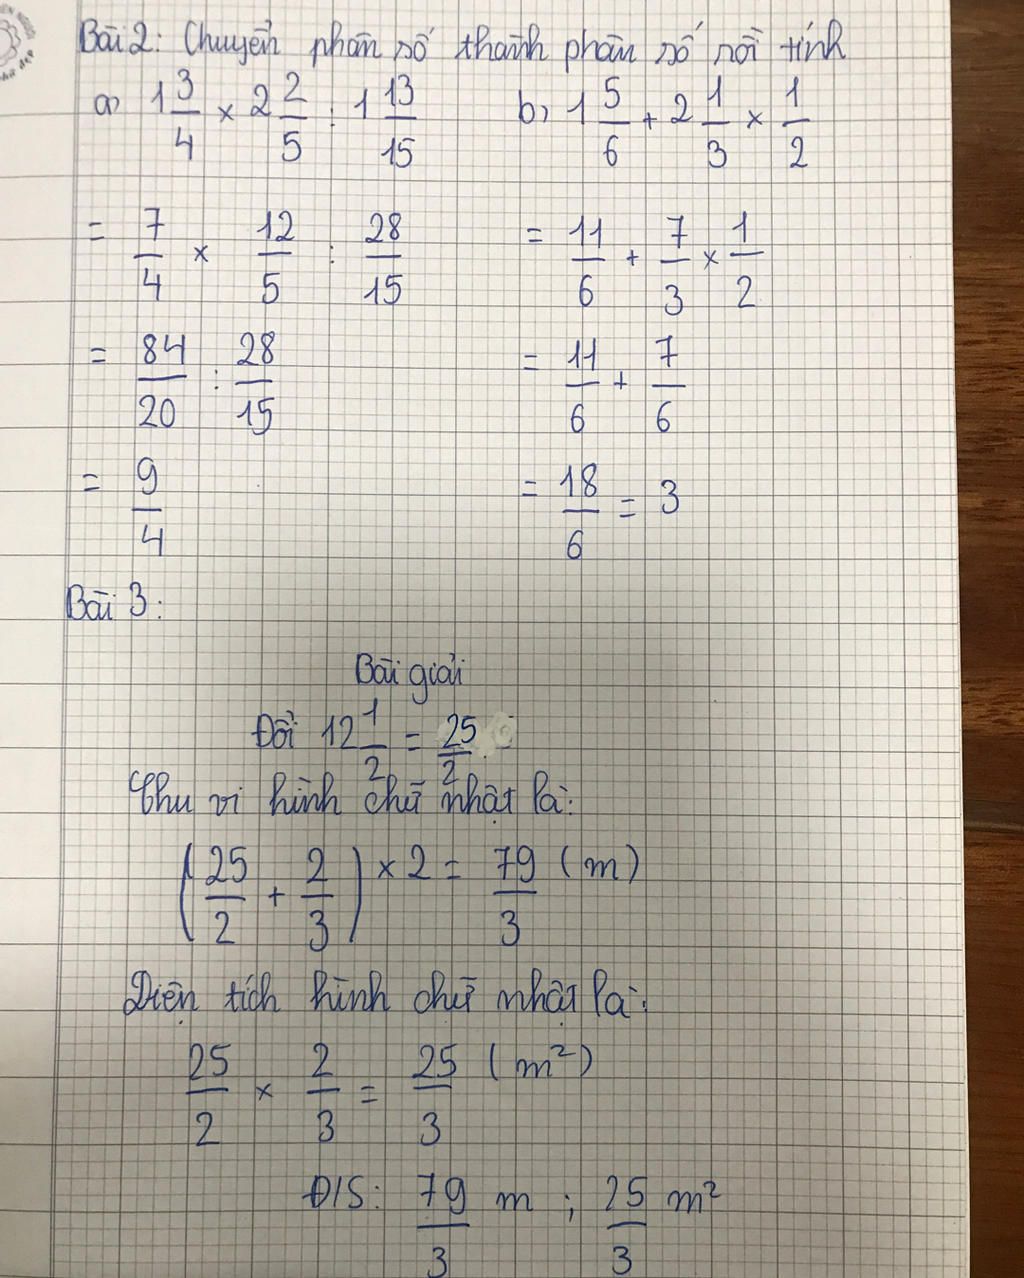 Bài 2: Chuyển phân số thành phân số rồi tính
a) 1 3/4 × 2 2/5 : 1 13/15
= 7/4 × 12/5 : 28/15
= 84/20 : 28/15
= 9/4
b) 1 5/6 + 2 1/3 × 1/2
= 11/6 + 7/3 × 1/2
= 11/6 + 7/6
= 18/6 = 3
Bài 3:
Bài giải
Đổi 12 1/2 = 25/2
Chu vi hình chữ nhật là:
(25/2 + 2/3) × 2 = 79/3 (m)
Diện tích hình chữ nhật là:
25/2 × 2/3 = 25/3 (m²)
Đ/S: 79/3 m ; 25/3 m²